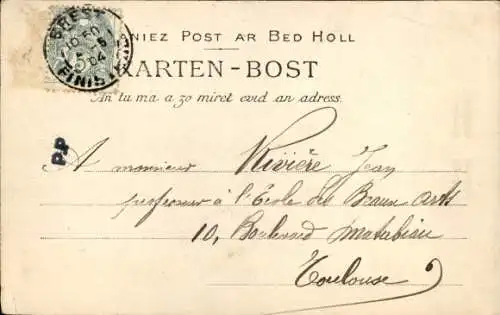 NIEZ POST AR BED HOLL
KARTEN-BOST
An tu ma a zo miret evid an adress.
BREST
FINIST
04
5
PP
A monsieur Rivière Jean
professeur à l'École des Beaux arts
10, Boulevard Matabiau
Toulouse